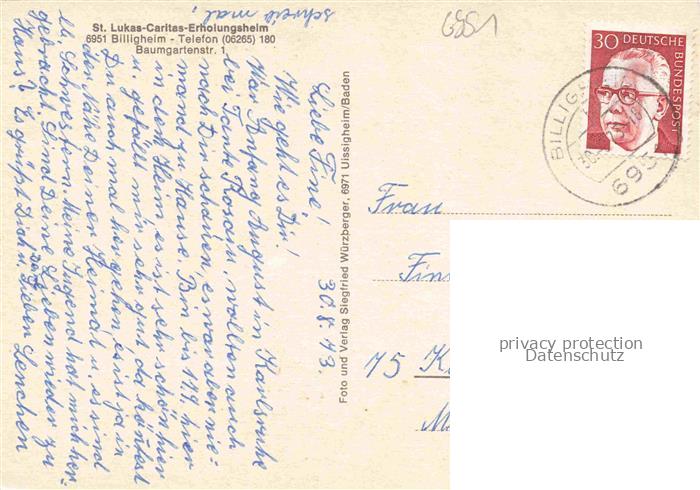 St. Lukas-Caritas-Erholungsheim
6951 Billigheim - Telefon (06265) 180
Baumgartenstr. 1
schreib mal!
6951
30 DEUTSCHE BUNDESPOST
BILLIGH
695
Foto und Verlag Siegfried Würzberger, 6971 Uissigheim/Baden
30.8.73.
Liebe Fine!
Wie geht es Dir!
War Anfang August in Karlsruhe
bei Tante Rosa u. wollten auch
nach Dir schauen, es war aber nie-
mand zu Hause. Bin bis 14.9. hier
in dem Heim es ist sehr schön hier
u. gefällt mir sehr gut, da könntest
Du auch mal hergehen es ist ja in
der Nähe Deiner Heimat u. es sind
Schwestern. Meine Jugend hat mich her-
gebracht. Sind Deine Lieben wieder zu
Haus? Es grüßt Dich u. Lieben Lenchen
Frau
Fin
75 K
M
privacy protection
Datenschutz